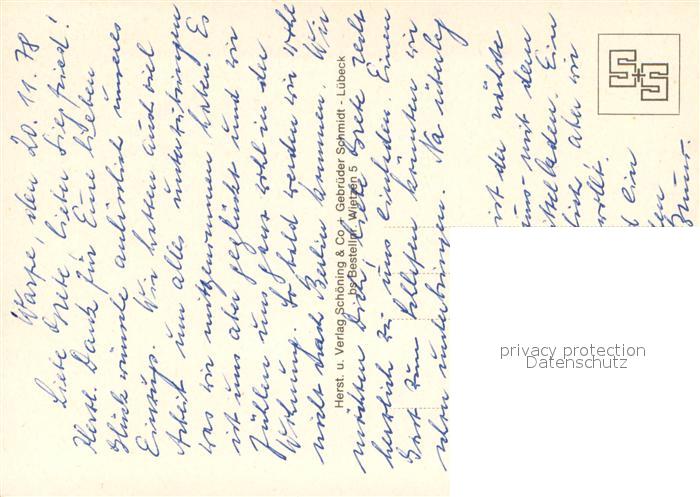 Warpe, den 20.11.78
Liebe Grete, lieber Siegfried!
Herzl. Dank für Eure lieben
Glückwünsche anläßlich unseres
Einzugs. Wir hatten auch viel
Arbeit um alles unterzubringen
was wir mitgenommen haben. Es
ist uns aber geglückt und wir
fühlen uns ganz wohl in der
Wohnung. So bald werden wir wohl
nicht nach Berlin kommen. Wir
möchten Dich, liebe Grete recht
herzlich zu uns einladen. Einen
Gast zum können wir
schon unterbringen. Na überleg
ist der nächste
uns mit dem
Ein
aber wir
wollt!
ein
Herst. u. Verlag Schöning & Co + Gebrüder Schmidt - Lübeck
bs Bestellnr. Wietzen 5
S+S
privacy protection
Datenschutz